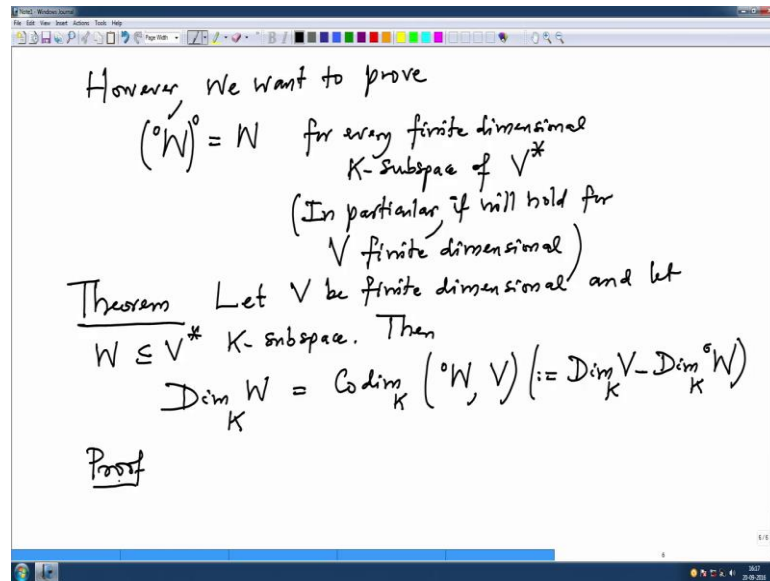 Note1 - Windows Journal
File Edit View Insert Actions Tools Help
Page Width
However, We want to prove
(°W)° = W for every finite dimensional
K-subspace of V*
(In particular, if will hold for
V finite dimensional)
Theorem Let V be finite dimensional and let
W ⊆ V* K-subspace. Then
Dim_K W = Codim_K (°W, V) (:= Dim_K V - Dim_K °W)
Proof
6/6
6
16:17
20-09-2016